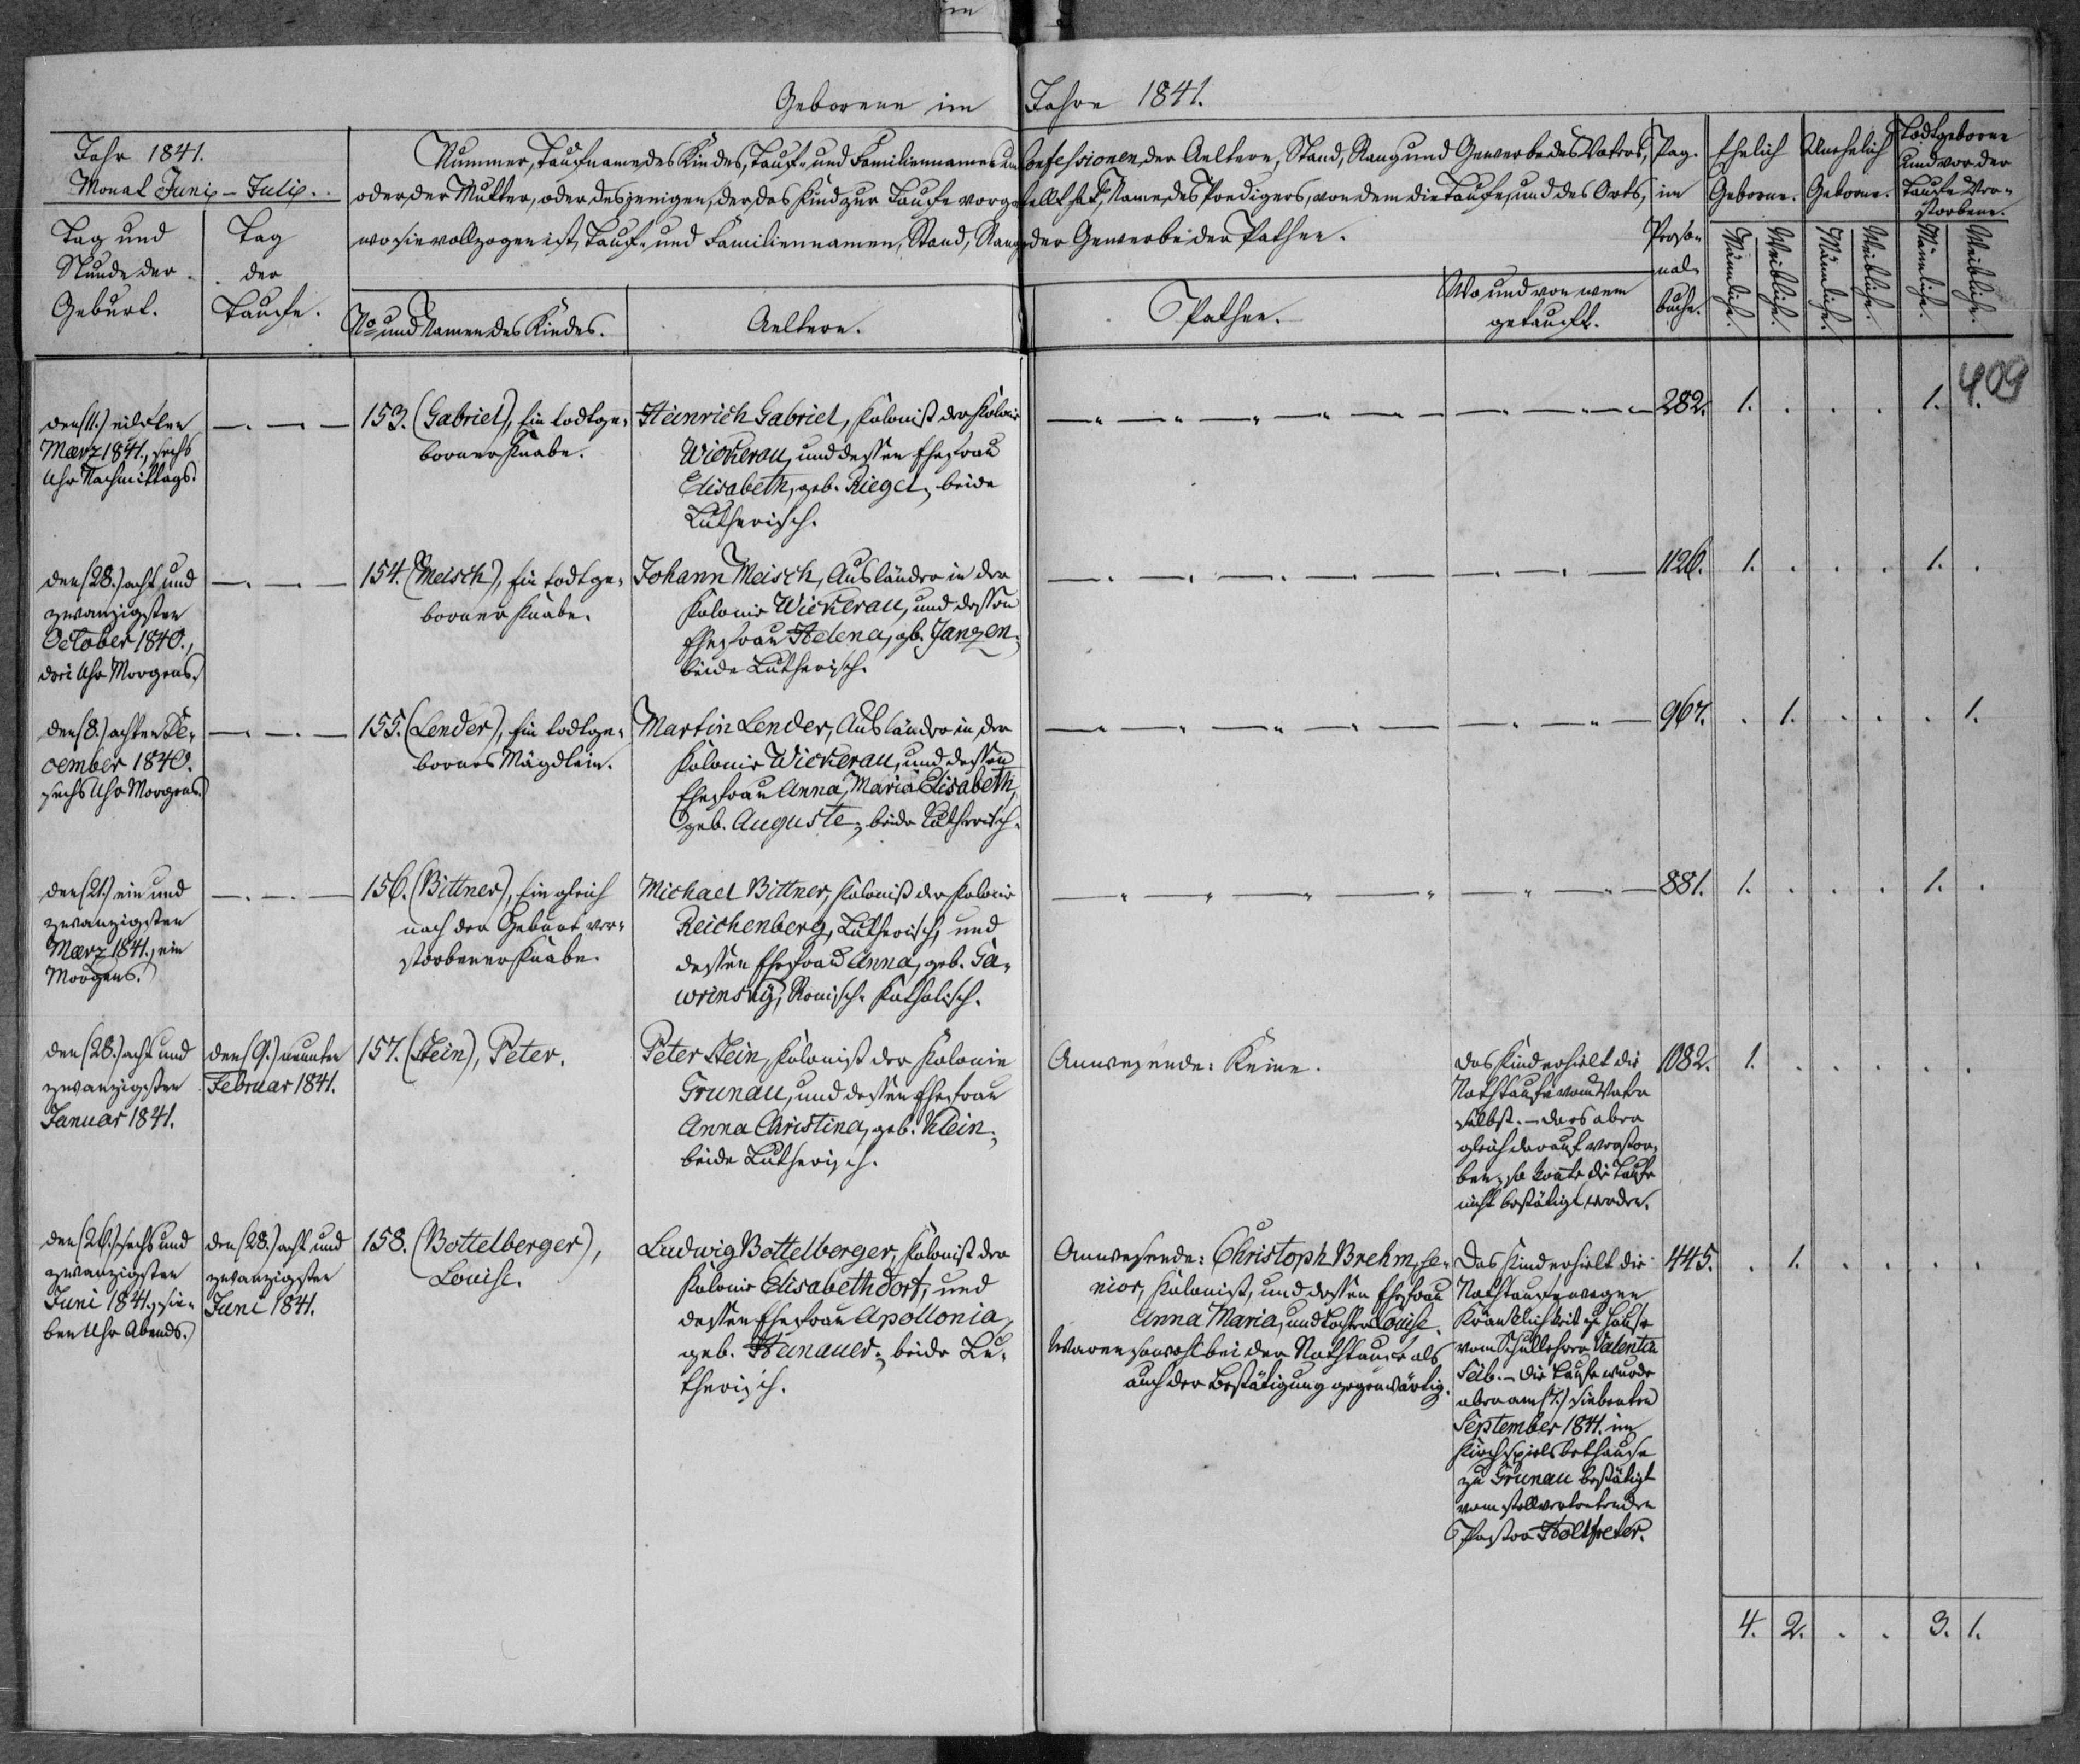 Geborene im Jahre 1841.
Jahr 1841.
Monat Juni – Juli.
Tag und
Stunde der
Geburt.
Tag
der
Taufe.
Nummer, Taufname des Kindes, Tauf- und Familiennamen und Confessionen der Aeltern, Stand, Rang und Gewerbe des Vaters,
oder der Mutter, oder desjenigen, der das Kind zur Taufe vorgestellt hat, Name des Predigers, von dem die Taufe, und des Orts,
wo sie vollzogen ist, Tauf- und Familiennamen, Stand, Rang oder Gewerbe der Pathen.
No und Namen des Kindes.
Aeltern.
Pathen.
Wo und von wem
getauft.
Pag.
im
Perso-
nal-
buche.
Ehelich
Geborne.
Unehelich
Geborne.
Todtgeborne
und vor der
Taufe Ver-
storbene.
Männliche.
Weibliche.
Männliche.
Weibliche.
Männliche.
Weibliche.
409
den (11.) eilften
Maerz 1841., sechs
Uhr Nachmittags.
153. (Gabriel), Ein todtge-
borner Knabe.
Heinrich Gabriel, Kolonist der Kolonie
Wickerau, und dessen Ehefrau
Elisabeth, geb. Riegel, beide
Lutherisch.
282. 1. . . . 1. .
den (28.) acht und
zwanzigsten
October 1840.,
drei Uhr Morgens.
154. (Meisch), Ein todtge-
borner Knabe.
Johann Meisch, Ausländer in der
Kolonie Wickerau, und dessen
Ehefrau Helena, gb. Janzen,
beide Lutherisch.
1126. 1. . . . 1. .
den (8.) achten De-
cember 1840.
sechs Uhr Morgens.
155. (Lender), Ein todtge-
bornes Mägdlein.
Martin Lender, Ausländer in der
Kolonie Wickerau, und dessen
Ehefrau Anna, Maria Elisabeth,
geb. Auguste, beide Lutherisch.
967. . 1. . . . 1.
den (21.) ein und
zwanzigsten
Maerz 1841., ein
Morgens.
156. (Bittner), Ein gleich
nach der Geburt ver-
storbener Knabe.
Michael Bittner, Kolonist der Kolonie
Reichenberg, Lutherisch, und
dessen Ehefrau Anna, geb. Ga-
wrinsky, Römisch-Katholisch.
881. 1. . . . 1. .
den (28.) acht und
zwanzigsten
Januar 1841.
den (9.) neunten
Februar 1841.
157. (Stein), Peter.
Peter Stein, Kolonist der Kolonie
Grunau, und dessen Ehefrau
Anna Christina, geb. Klein,
beide Lutherisch.
Anwesende: Keine.
Das Kind erhielt die
Nothtaufe vom Vater
selbst. – Da es aber
gleich darauf verstor-
ben, so konnte die Taufe
nicht bestätigt werden.
1082. 1. . . . . .
den (26.) sechs und
zwanzigsten
Juni 1841., sie-
ben Uhr Abends.
den (28.) acht und
zwanzigsten
Juni 1841.
158. (Bottelberger),
Louise.
Ludwig Bottelberger, Kolonist der
Kolonie Elisabethdorf, und
dessen Ehefrau Apollonia,
geb. Hanauer, beide Lu-
therisch.
Anwesende: Christoph Brehm, se-
nior, Kolonist, und dessen Ehefrau
Anna Maria, und Tochter Louise.
Waren sowohl bei der Nothtaufe als
auch der Bestätigung gegenwärtig.
Das Kind erhielt die
Nothtaufe wegen
Kränklichkeit zu Hause
vom Schullehrer Valentin
Feib. – Die Taufe wurde
aber am (7.) siebenten
September 1841. im
Kirchspielsbethause
zu Grunau bestätigt
vom stellvertretenden
Pastor Holtfreter.
445. . 1. . . . .
4. 2. . . 3. 1.